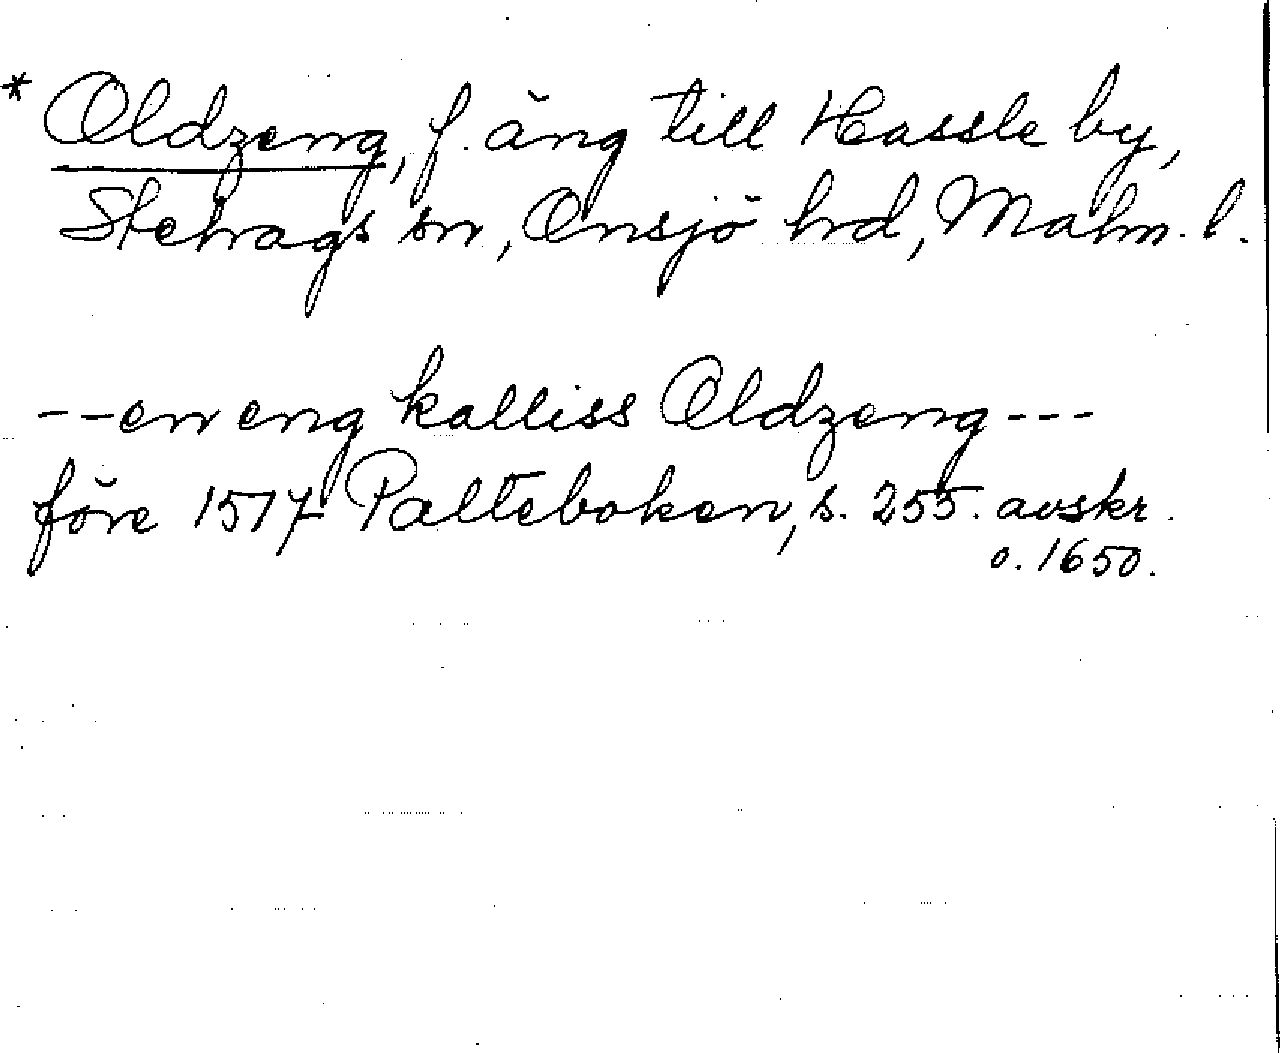 * Oldzeng, f. äng till Hassle by,
Stehags sn, Onsjö hrd, Malm. l.
--en eng kalliss Oldzeng---
före 1517 Palteboken, s. 255. avskr.
o. 1650.